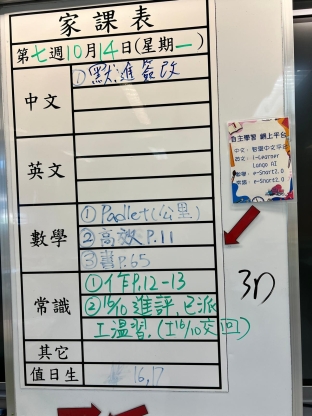 家課表
第七週10月14日(星期一)
中文
①默進簽改
英文
數學
①Padlet(公里)
②高效P.11
③書P.65
常識
①作P.12-13
②16/10進評,已派
工溫習.(工16/10交回)
其它
值日生
16,17
自主學習 網上平台
中文:智愛中文平台
英文:i-Learner
Longo AI
數學:e-Smart2.0
常識:e-Smart2.0
3D